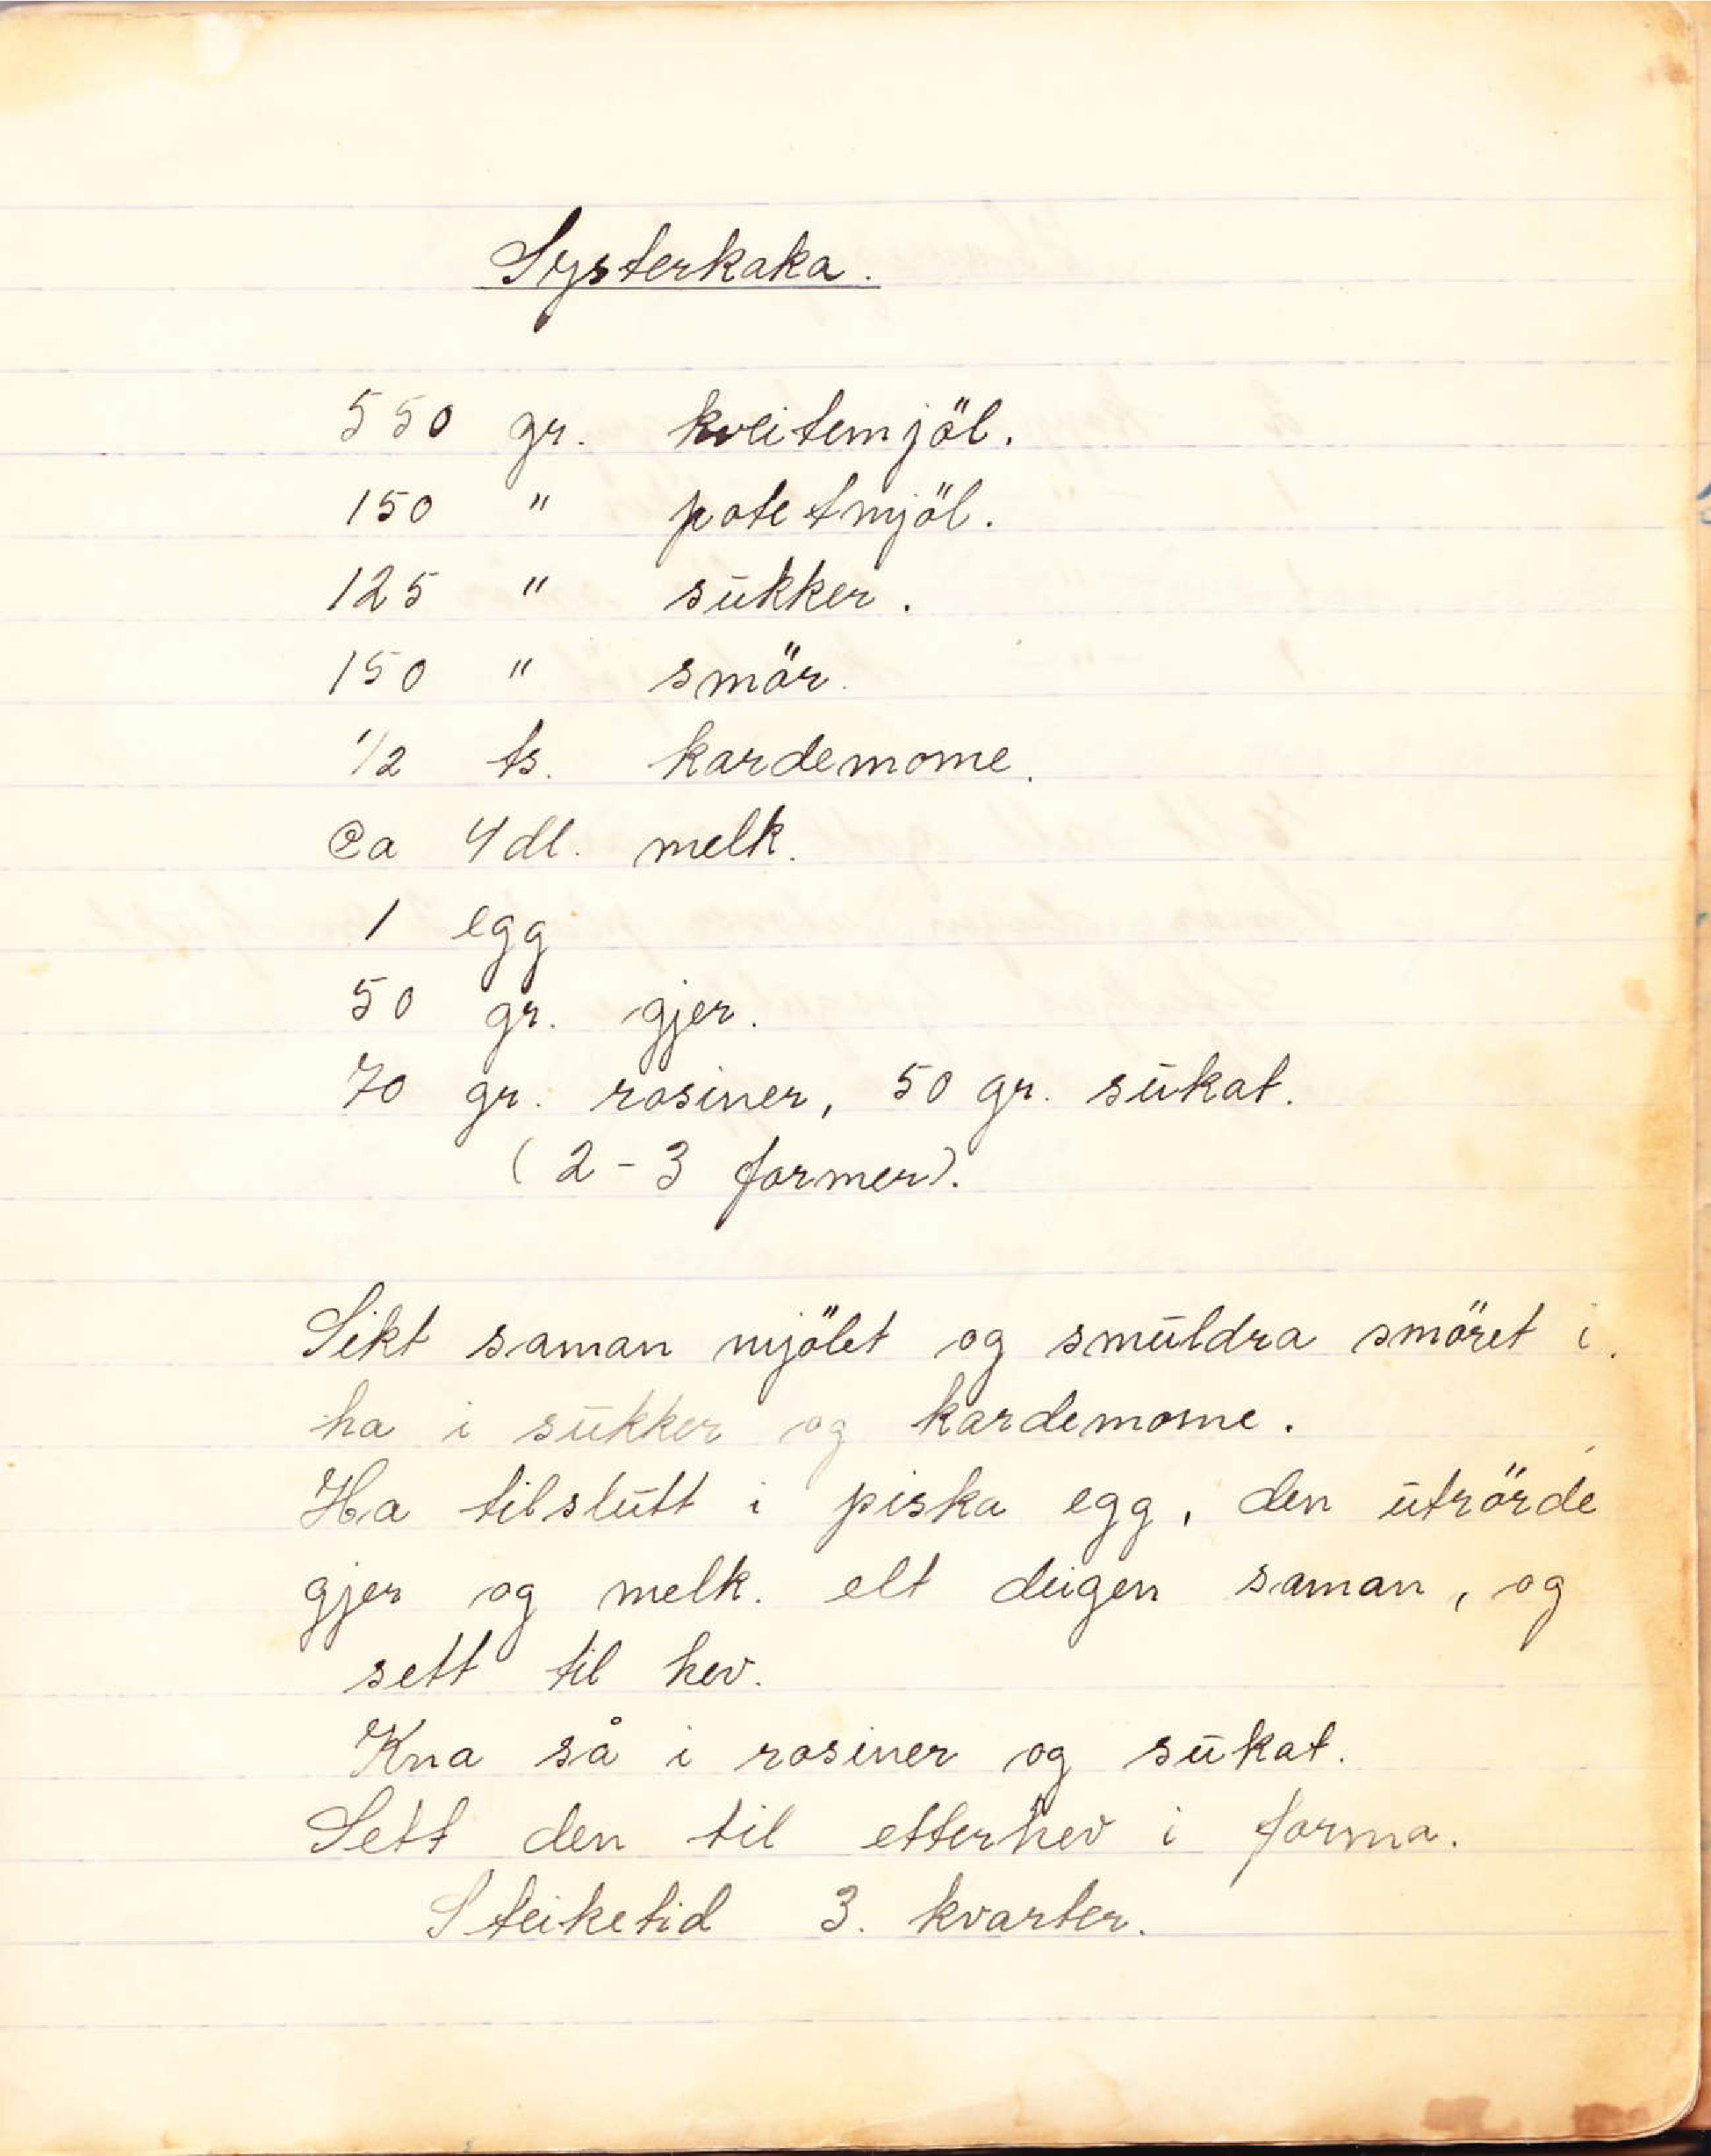 Systerkaka.
550 gr. kveitemjöl.
150 " potetmjöl.
125 " sukker.
150 " smör.
1/2 ts. kardemome.
Ca 4 dl. melk.
1 egg
50 gr. gjer.
70 gr. rosiner, 50 gr. sukat.
(2-3 former).
Sikt saman mjölet og smuldra smöret i.
ha i sukker og kardemome.
Ha tilslutt i piska egg, den utrörde
gjer og melk. elt deigen saman, og
sett til hev.
Kna så i rosiner og sukat.
Sett den til etterhev i forma.
Steiketid 3. kvarter.